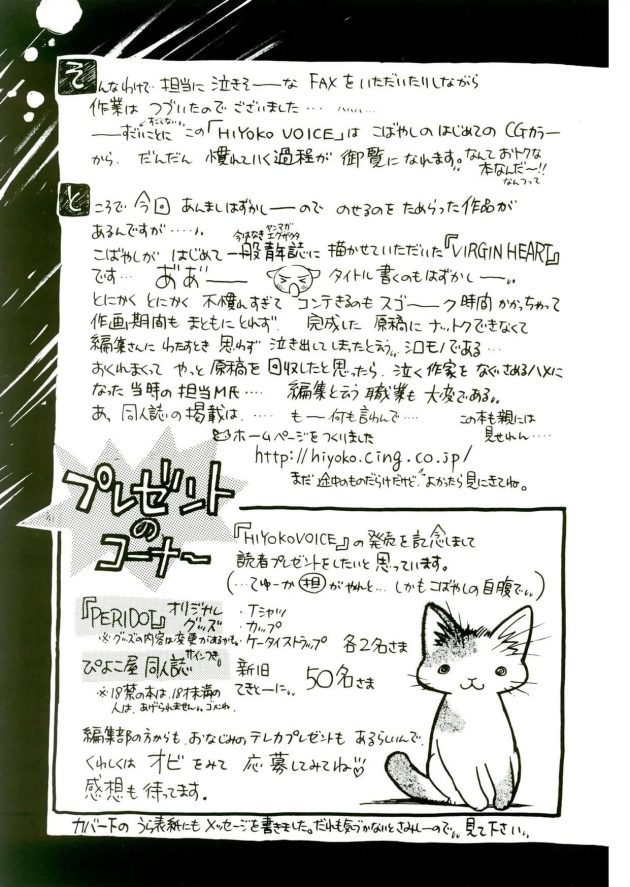 そんなわけで 担当に泣きそーーな FAXをいただいたりしながら
作業は つづいたのでございました‥‥
すごくない
ーーすごいことに この「HiYoKo VOICE」は こばやしのはじめての CGカラー
から、だんだん 慣れていく過程が 御覧になれます。なんて おトクな
本なんだ〜!!
なんつって
ところで 今回 あんましはずかしーーので のせるのを ためらった作品が
あるんですが‥‥‥
今はなき ヤンマガエグザクタ
こばやしが はじめて 一般青年誌に 描かせていただいた『VIRGIN HEART』
です… あ゛あ゛ーー タイトル書くのもはずかしーー
とにかく とにかく 不慣れすぎて コンテきるのも スゴーーク時間かかっちゃって
作画期間も まともにとれず、完成した 原稿に ナットクできなくて
編集さんに わたすとき 思わず 泣き出してしまったとゆう シロモノである…
おくれまくって やっと原稿を回収したと思ったら、泣く作家を なぐさめるハメに
なった 当時の担当M氏‥‥ 編集と云う 職業も 大変である
あ、同人誌の掲載は‥‥‥ もー何も言わんで‥‥ この本も親には
見せれん‥‥
ホームページをつくりました
http://hiyoko.cing.co.jp/
まだ 途中のものだらけだけど よかったら見にきてね。
プレゼント
の
コーナー
『HiYoKoVOICE』の発売を記念しまして
読者プレゼントをしたいと思っています。
(…てゆーか 担 がやれと… しかも こばやしの自腹で)
『PERIDOT』オリジナルグッズ
・Tシャツ
・カップ
・ケータイストラップ 各2名さま
※グッズの内容は変更があるかも。
ぴよこ屋 同人誌 サインつき。
新旧
てきとーに 50名さま
※18禁の本は、18才未満の
人は、あげられません ゴメンね。
編集部の方からも おなじみの テレカプレゼントも あるらしいんで、
くわしくは オビをみて 応募してみてね
感想も待ってます。
カバー下の うら表紙にも メッセージを書きました。だれも気づかないとさみしーので 見て下さい